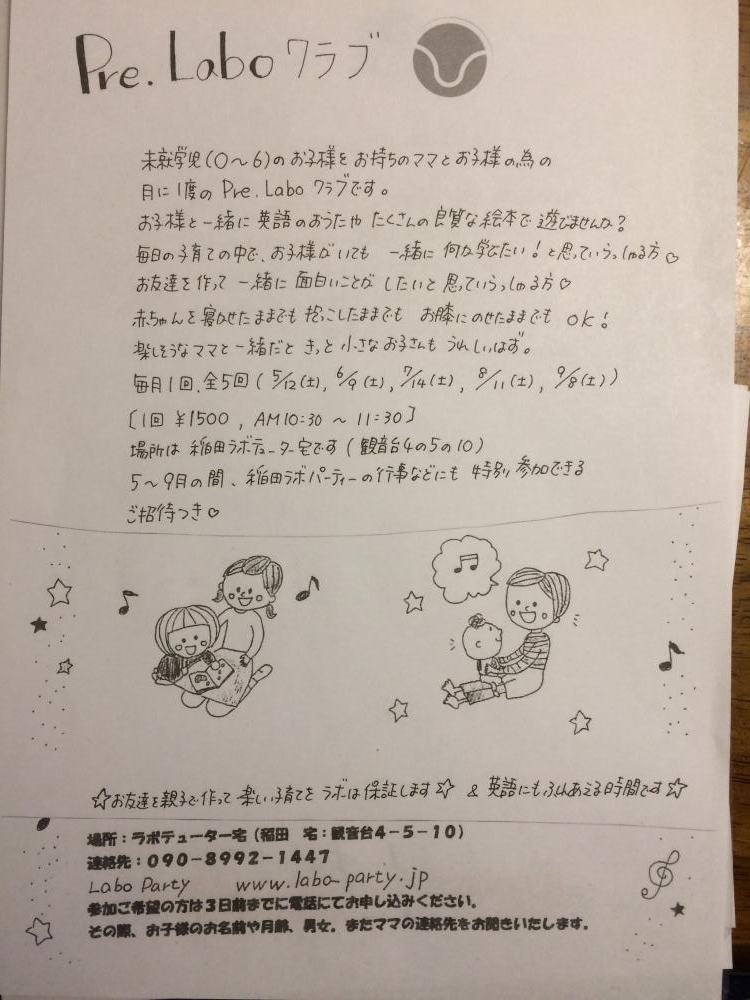 Pre. Labo クラブ
未就学児(0〜6)のお子様をお持ちのママとお子様の為の
月に1度の Pre. Labo クラブです。
お子様と一緒に英語のおうたや たくさんの良質な絵本で遊びませんか?
毎日の子育ての中で、お子様がいても 一緒に何か学びたい!と思っていらっしゃる方♡
お友達を作って 一緒に面白いことが したいと思っていらっしゃる方♡
赤ちゃんを寝かせたままでも 抱っこしたままでも お膝にのせたままでも OK!
楽しそうなママと一緒だと きっと小さなお子さんも うれしいはず。
毎月1回、全5回(5/12(土), 6/9(土), 7/14(土), 8/11(土), 9/8(土))
[1回 ¥1500, AM10:30 〜 11:30]
場所は 稲田ラボテューター宅です(観音台4の5の10)
5〜9月の間、稲田ラボパーティーの行事などにも 特別参加できる
ご招待つき♡
☆お友達を親子で作って 楽しい子育てを ラボは保証します☆ & 英語にもふれあえる時間です☆
場所:ラボテューター宅(稲田 宅:観音台4-5-10)
連絡先:090-8992-1447
Labo Party www.labo-party.jp
参加ご希望の方は3日前までに電話にてお申し込みください。
その際、お子様のお名前や月齢、男女。またママの連絡先をお聞きいたします。